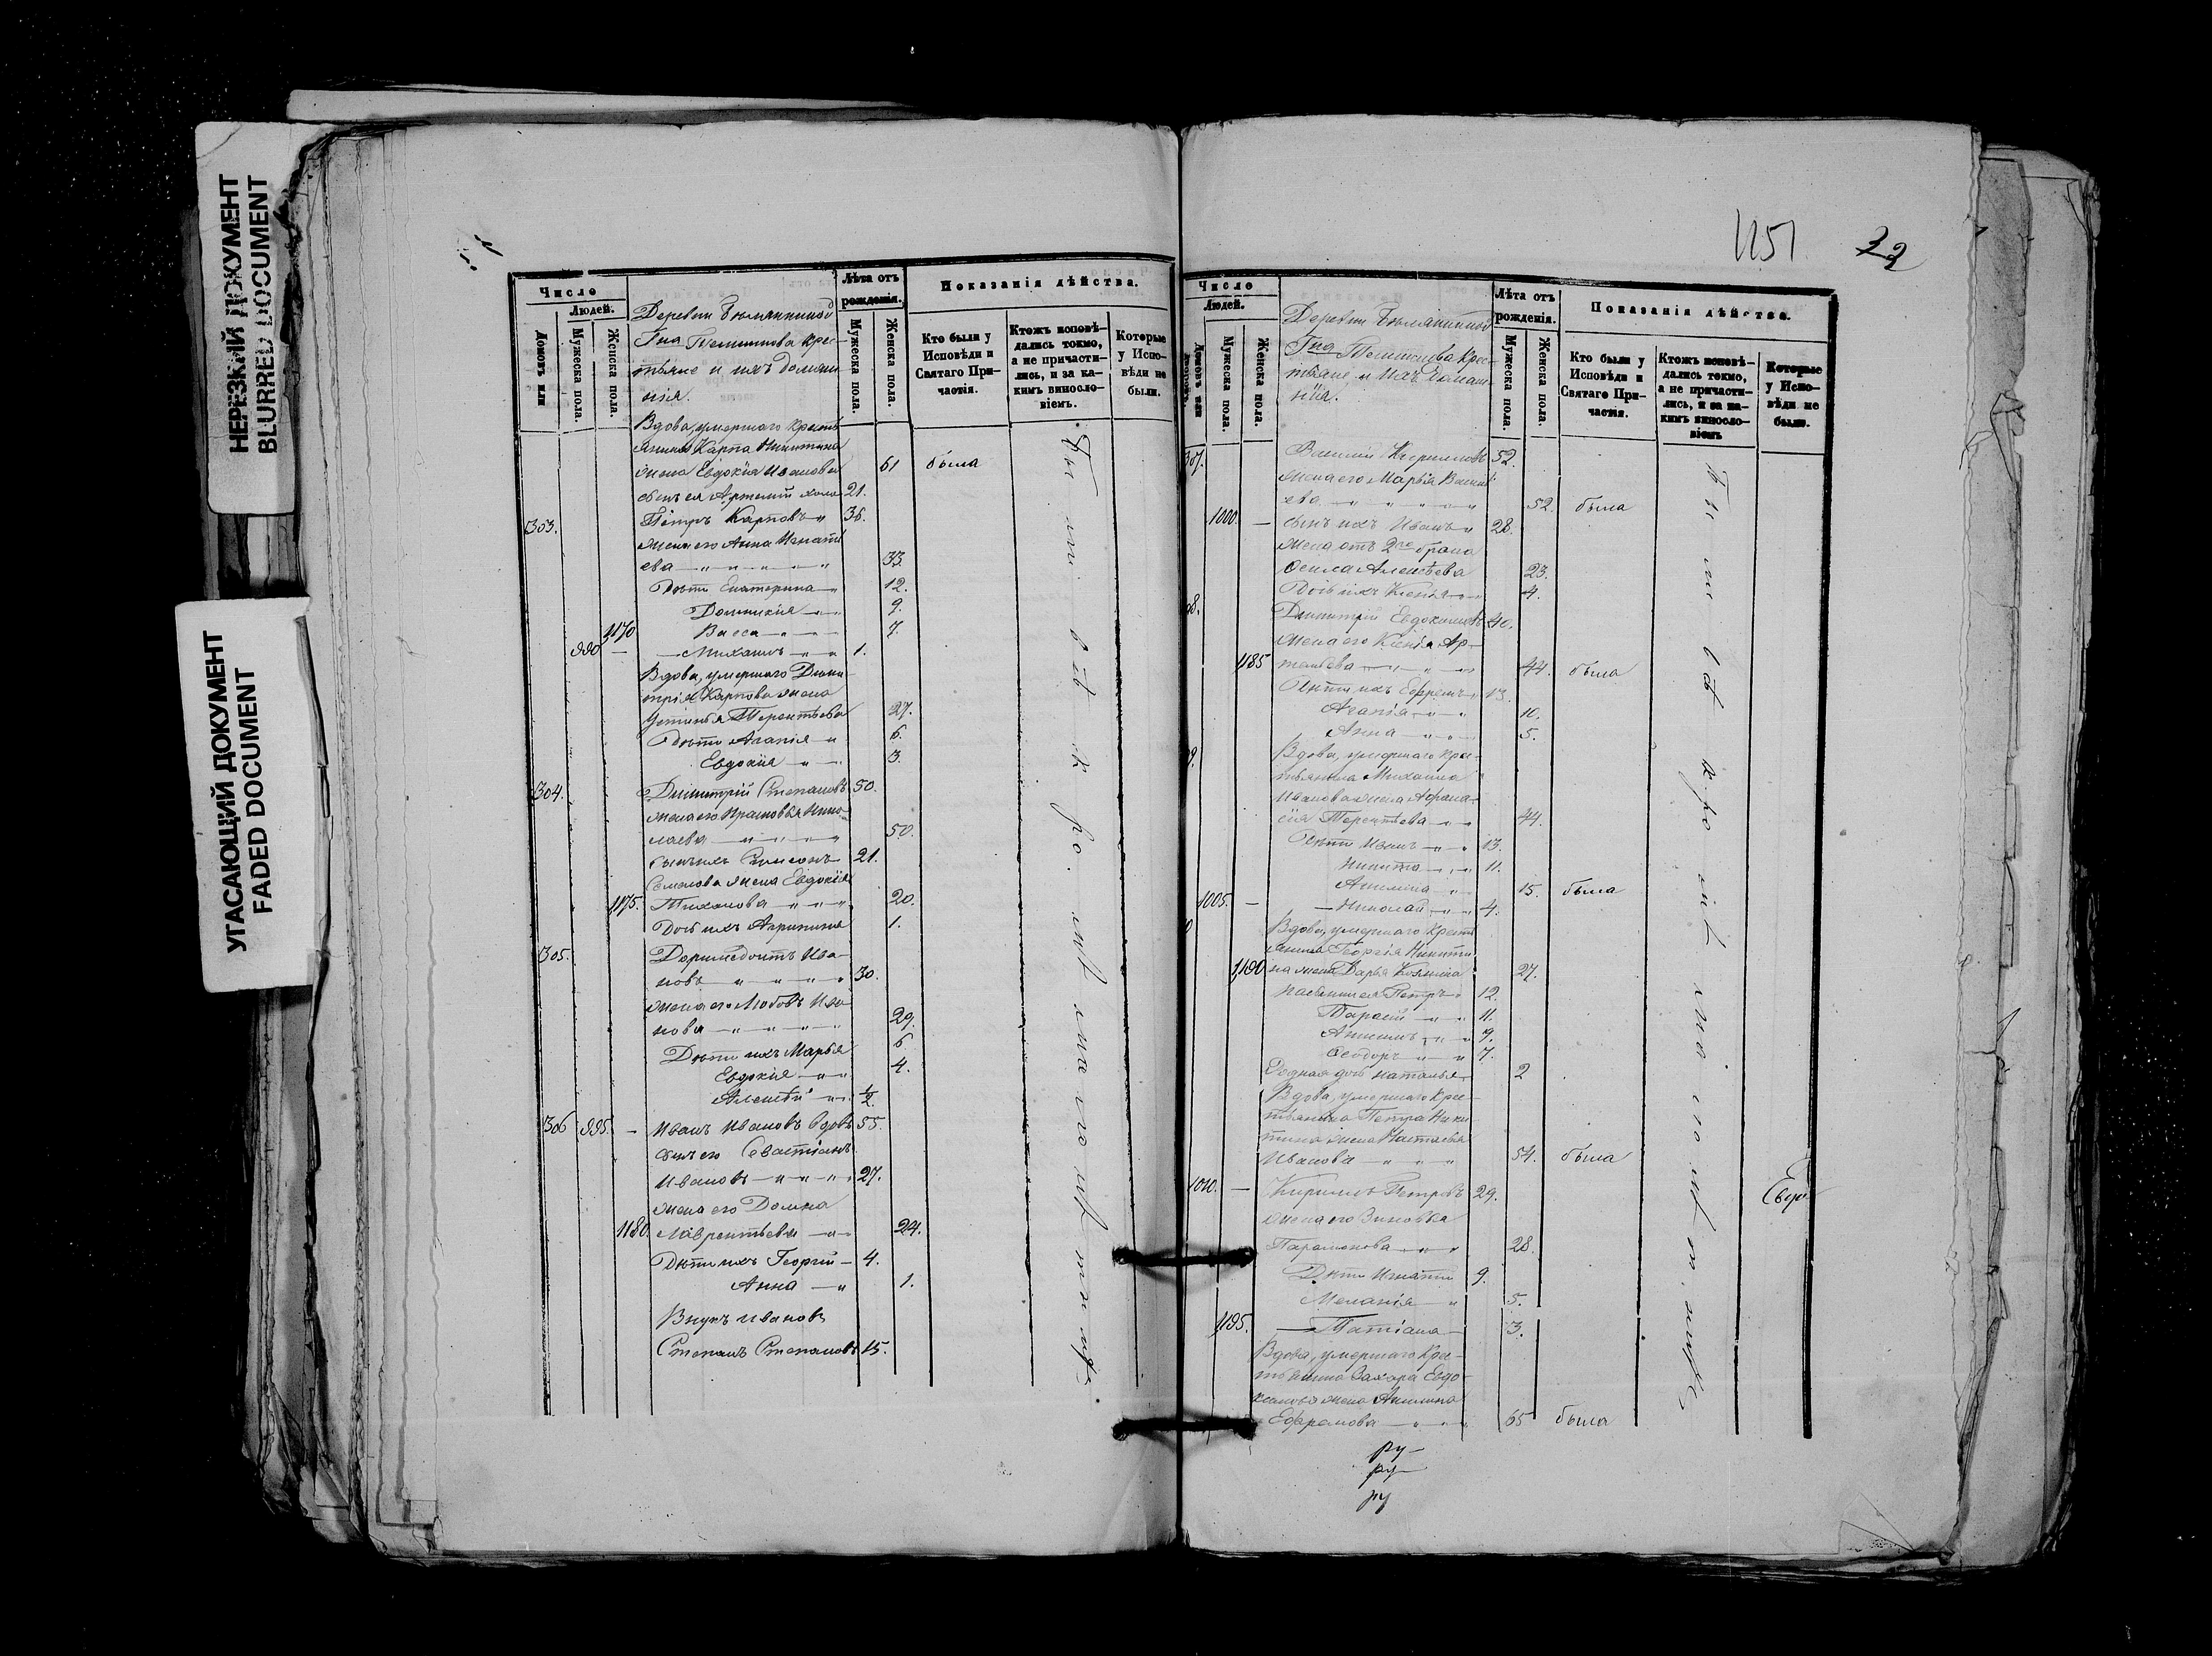 НЕРЕЗКИЙ ДОКУМЕНТ
BLURRED DOCUMENT
УГАСАЮЩИЙ ДОКУМЕНТ
FADED DOCUMENT
Число
Людей.
Домовъ или
Мужеска пола.
Женска пола.
Деревни
Гна крес-
тьяне и ихъ домаш
нія.
Лѣта отъ
рожденія.
Мужеска пола.
Женска пола.
Показанія дѣйства.
Кто были у
Исповѣди и
Святаго При-
частія.
Ктожъ исповѣ-
дались токмо,
а не причасти-
лись, и за ка-
кимъ винословіемъ.
Которые
у Испо-
вѣди не
были.
Вдова, умершаго кресть
янина Карпа Никитина
жена Евдокія Иванова 61 была
сынъ ея Артемій холо 21.
303. Петръ Карповъ 36.
жена его Анна Игнать
ева 33.
Дѣти Екатерина 12.
Домникія 9.
1170 Васса 7.
990 — Михаилъ 1.
Вдова, умершаго Дими
трія Карпова жена
Устинья Терентьева 27.
Дѣти Агапія 6.
Евдокія 3.
304. Димитрій Степановъ 50.
жена его Нико-
лаева 50.
сынъ ихъ Симеонъ 21.
Семенова жена Евдокія
1175. Тихонова 20.
Дочь ихъ Агрипина 1.
305. Доримедонтъ Ива-
новъ 30.
жена его Любовь Ива
нова 29.
Дѣти ихъ Марья 6
Евдокія 4.
Алексѣй ½.
306 995. — Иванъ Ивановъ вдовъ 55.
сынъ его Севастіанъ
Ивановъ 27.
жена его Домна
1180. Лаврентьева 24.
Дѣти ихъ Георгій 4.
Анна 1.
Внукъ Ивановъ
Степанъ Степановъ 15.
1151 32
Число
Людей.
Мужеска пола.
Женска пола.
Деревни
Гна крес-
тьяне и ихъ домаш
нія.
Лѣта отъ
рожденія.
Мужеска пола.
Женска пола.
Показанія дѣйства.
Кто были у
Исповѣди и
Святаго При-
частія.
Ктожъ исповѣ-
дались токмо,
а не причасти-
лись, и за ка-
кимъ винословіемъ
Которые
у Испо-
вѣди не
были.
307. Василій Кирилловъ 52.
жена его Марья Василь
ева 52. была
1000. — сынъ ихъ Иванъ 28.
жена отъ 2го брака
Алексѣева 23.
Дочь ихъ Ксенія 4.
08. Димитрій Евдокимовъ 40.
жена его Ксенія Ар-
1185 темьева 44. была
Дѣти ихъ Ефремъ 13.
Агапія 10.
Анна 5.
9. Вдова, умершаго крес-
тьянина Михаила
Иванова жена Афана-
сія Терентьева 44.
Дѣти Иванъ 13.
Никита 11.
Акилина 15. была
1005. — Николай 4.
0 Вдова, умершаго кресть
янина Георгія Никити
1190 на жена Дарья Козмина 27.
пасынки ея Петръ 12.
Тарасій 11.
Анисимъ 9.
Ѳеодоръ 7.
Родная дочь Наталья 2
Вдова, умершаго крес-
тьянина Петра Ники
тина жена Настасья
Иванова 54. была
1010. — Кириллъ Петровъ 29.
жена его Зиновья
Парамонова 28.
Дѣти Игнатій 9.
Меланія 5.
1195. Татіана 3.
Вдова, умершаго крес-
тьянина Захара Евдо
кимова жена Акилина
Ефремова 65 была
ру-
ру-
ру